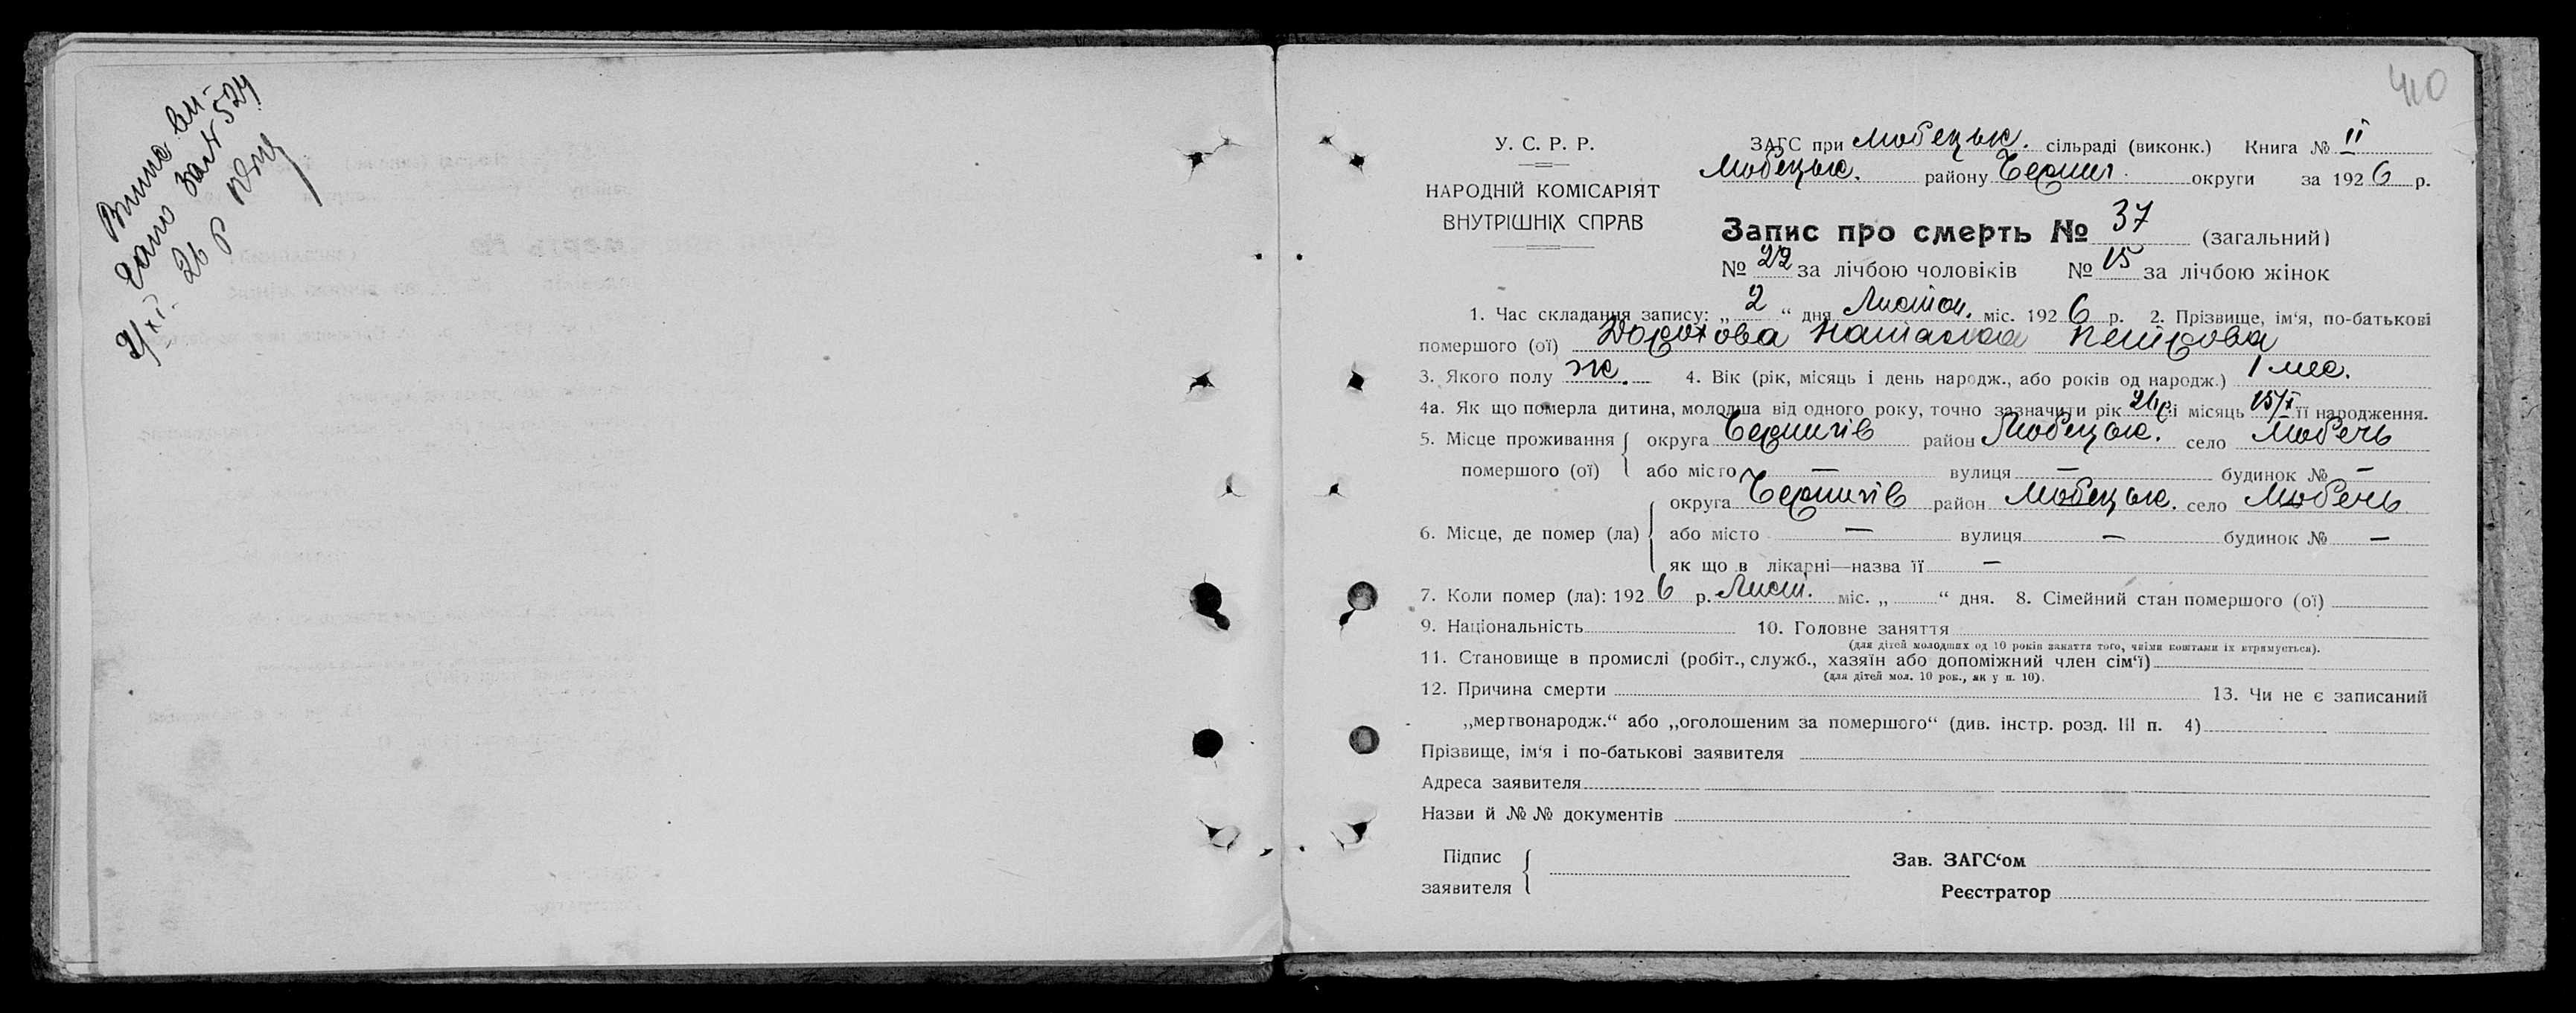 Випис ви-
дано за № 524
2/XI 26 р
410
У. С. Р. Р.
НАРОДНІЙ КОМІСАРІЯТ
ВНУТРІШНІХ СПРАВ
ЗАГС при Любецьк. сільраді (виконк.) Книга № II
Любецьк. району Черниг. округи за 1926 р.
Запис про смерть № 37 (загальний)
№ 22 за лічбою чоловіків № 15 за лічбою жінок
1. Час складання запису: „2“ дня Листоп. міс. 1926 р. 2. Прізвище, ім‘я, по-батькові
помершого (ої) Дорохова Наталка Петрова
3. Якого полу ж. 4. Вік (рік, місяць і день народж., або років од народж.) 1 мес.
4а. Як що померла дитина, молодша від одного року, точно зазначити рік 26 р. і місяць 15/X її народження.
5. Місце проживання округа Чернигів район Любецьк. село Любечь
помершого (ої) або місто — вулиця — будинок № —
округа Чернигів район Любецьк. село Любечь
6. Місце, де помер (ла) або місто — вулиця — будинок № —
як що в лікарні—назва її —
7. Коли помер (ла): 1926 р. Лист. міс. „ “ дня. 8. Сімейний стан помершого (ої)
9. Національність 10. Головне заняття
(для дітей молодших од 10 років заняття того, чиїми коштами їх втримується).
11. Становище в промислі (робіт., служб., хазяїн або допоміжний член сім‘ї)
(для дітей мол. 10 рок., як у п. 10).
12. Причина смерти 13. Чи не є записаний
„мертвонародж.“ або „оголошеним за помершого“ (див. інстр. розд. III п. 4)
Прізвище, ім‘я і по-батькові заявителя
Адреса заявителя
Назви й № № документів
Підпис
заявителя
Зав. ЗАГС‘ом
Реєстратор